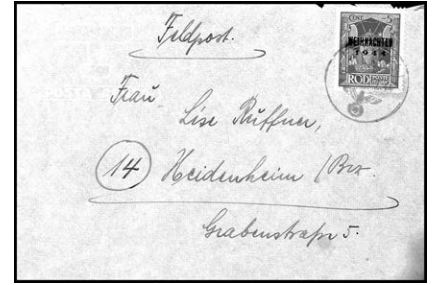 Feldpost.
CENT 5
WEIHNACHTEN
1944
RODI POSTE
Frau
Lise Ruffner,
(14) Heidenheim / Brz.
Grabenstraße 5.